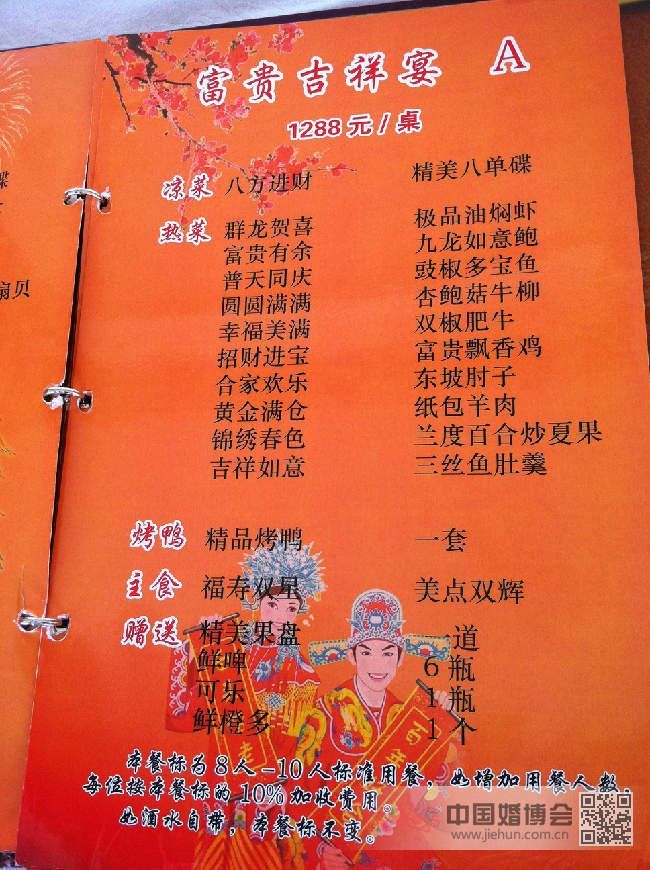 富贵吉祥宴 A
1288元/桌
凉菜 八方进财 精美八单碟
热菜 群龙贺喜 极品油焖虾
富贵有余 九龙如意鲍
普天同庆 豉椒多宝鱼
圆圆满满 杏鲍菇牛柳
幸福美满 双椒肥牛
招财进宝 富贵飘香鸡
合家欢乐 东坡肘子
黄金满仓 纸包羊肉
锦绣春色 兰度百合炒夏果
吉祥如意 三丝鱼肚羹
烤鸭 精品烤鸭 一套
主食 福寿双星 美点双辉
赠送 精美果盘 一道
鲜啤 6瓶
可乐 1瓶
鲜橙多 1个
本餐标为8人-10人标准用餐,如增加用餐人数,
每位按本餐标的10%加收费用。
如酒水自带,本餐标不变。
中国婚博会
www.jiehun.com.cn
扇贝